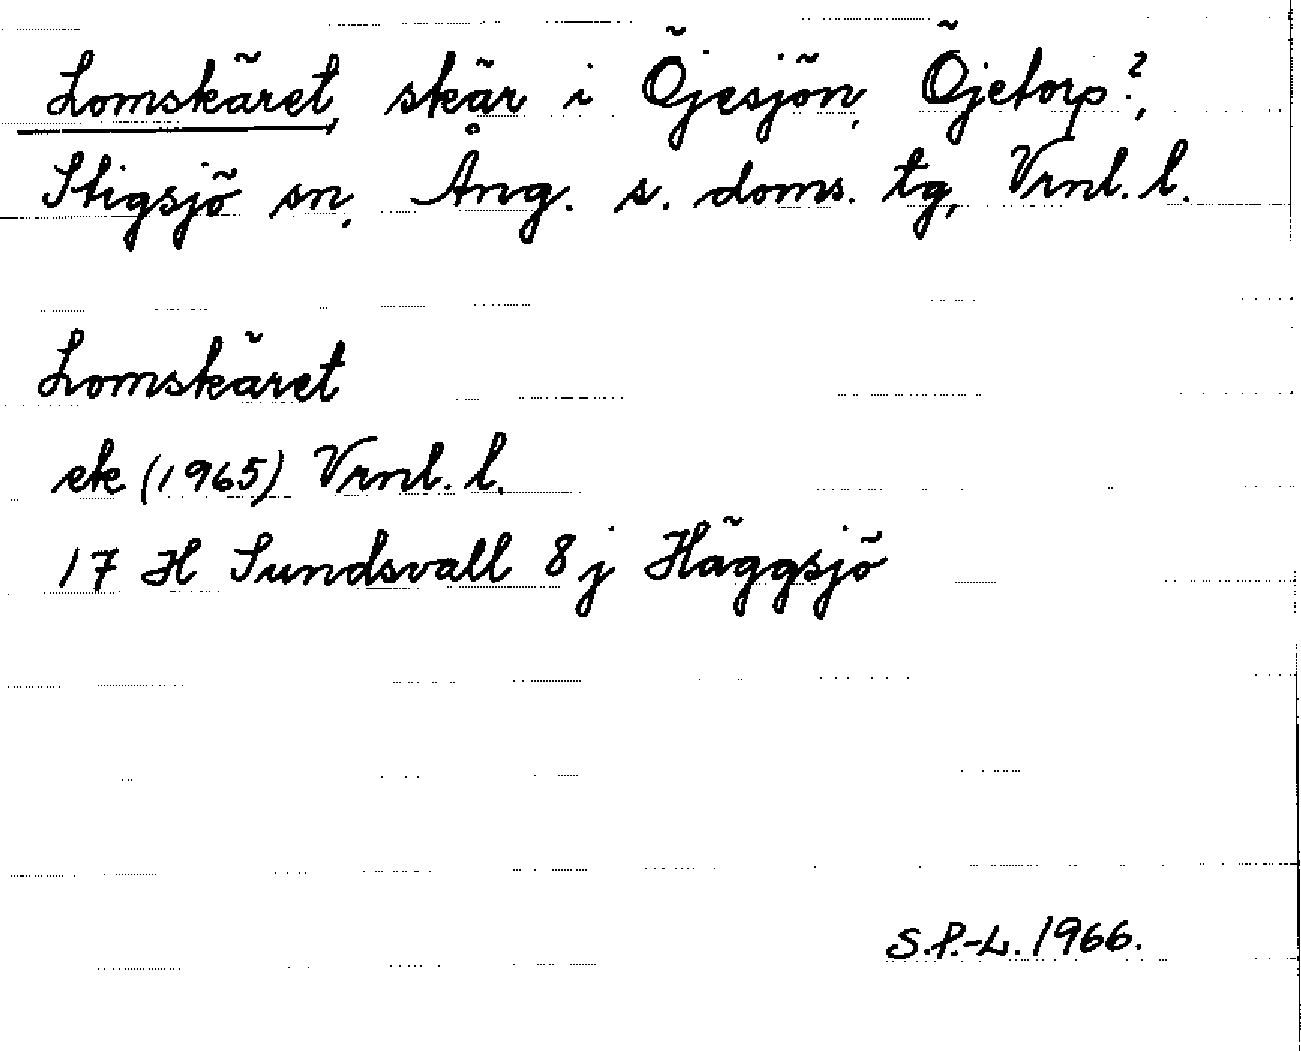 Lomskäret, skär i Öjesjön, Öjetorp?,
Stigsjö sn, Ång. s. doms. tg, Vrnl. l.
Lomskäret
ek (1965) Vrnl. l.
17 H Sundsvall 8 j Häggsjö
S.P.-L. 1966.